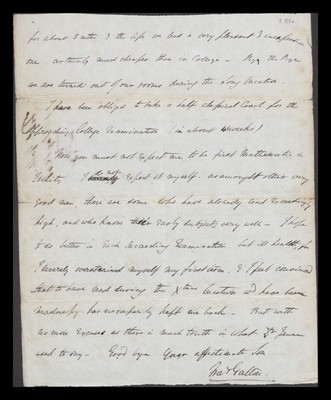 for about 3 miles & the life we lead a very pleasant & inexpensive
one certainly much cheaper than in College —
we are turned out of our rooms during the long vacation
I have been obliged to take a half classical Coach for the
approaching College Examination (in about 4 weeks)
Now you must not expect me to be first Mathematic in
I do not expect it myself. as amongst other very
good men, there are some who have already read exceedingly
high, and who know their early subjects very well — I hope
to do better in each succeeding Examination but ill health, for
I severely overstrained myself my first term, & I feel convinced
that to have read during the Xtmas Vacation I have been
has necessarily kept me back — But with
no more Excuses as there is much truth in what Dr Jeune
used to say — Good bye Your affectionate Son
Fras Galton